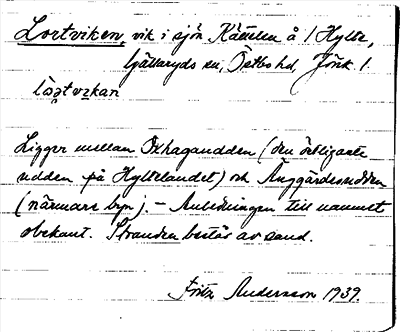 Lortviken, vik i sjön Rasslen å 1 Hylte,
Gällaryds sn, Östbo hd, Jönk. l.
lo̱ṣtvekan
Ligger mellan Oxhagaudden (den östligaste
udden på Hyltelandet) och Änggårdsudden
(närmare byn). – Anledningen till namnet
obekant. Stranden består av sand.
Fritz Andersson 1939.